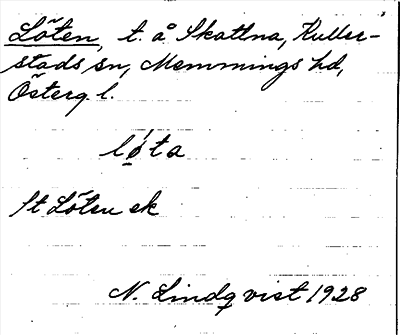 Löten, t. å Skattna, Kuller-
stads sn, Memmings hd,
Österg. l.
lø´ta
St Löten ek
N. Lindqvist 1928